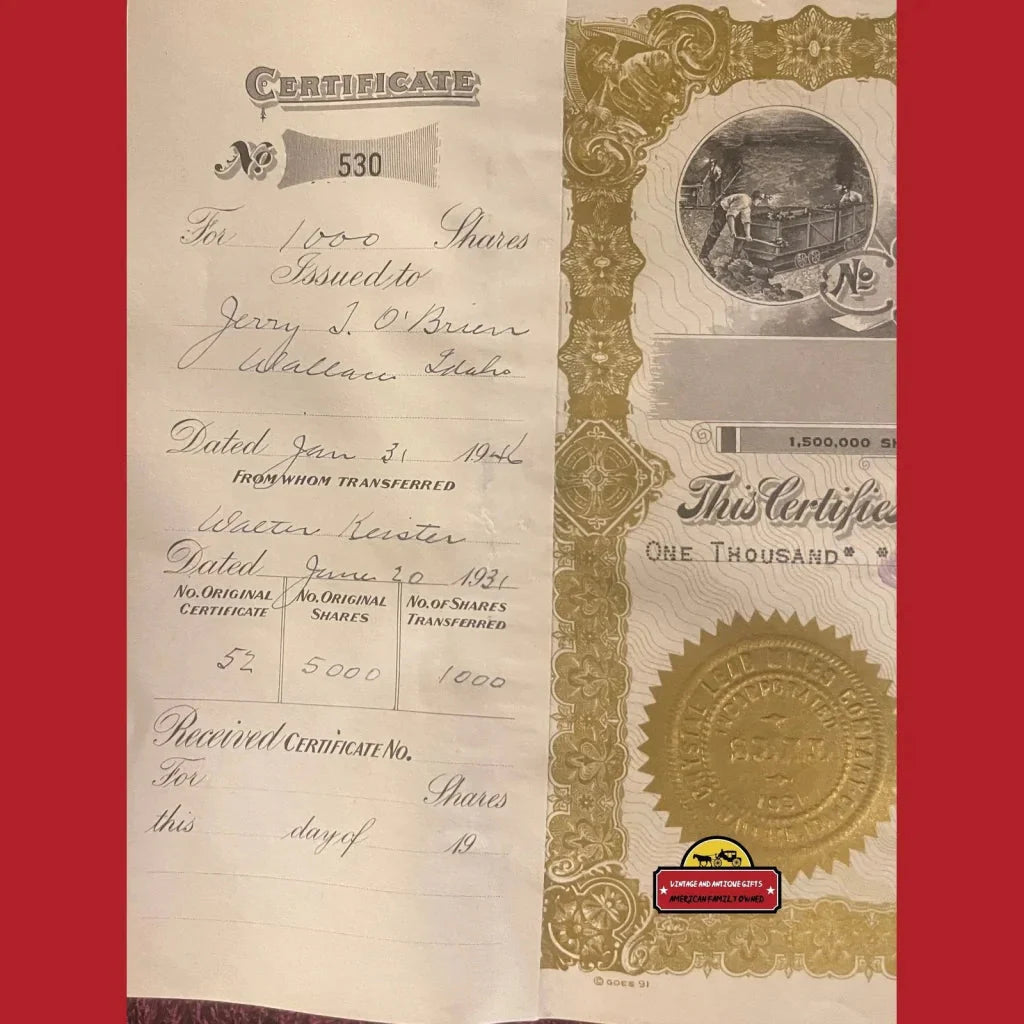 CERTIFICATE
No 530
For 1000 Shares
Issued to
Jerry J. O'Brien
Wallace Idaho
Dated Jan 31 1946
FROM WHOM TRANSFERRED
Walter Keister
Dated June 20 1931
NO. ORIGINAL CERTIFICATE
NO. ORIGINAL SHARES
NO. OF SHARES TRANSFERRED
52 5000 1000
Received CERTIFICATE NO.
For Shares
this day of 19
No
1,500,000 SH
This Certifies
ONE THOUSAND* *
LEAD MINES COMPANY
INCORPORATED
SEAL
1931
VINTAGE AND ANTIQUE GIFTS
AMERICAN FAMILY OWNED
© GOES 91